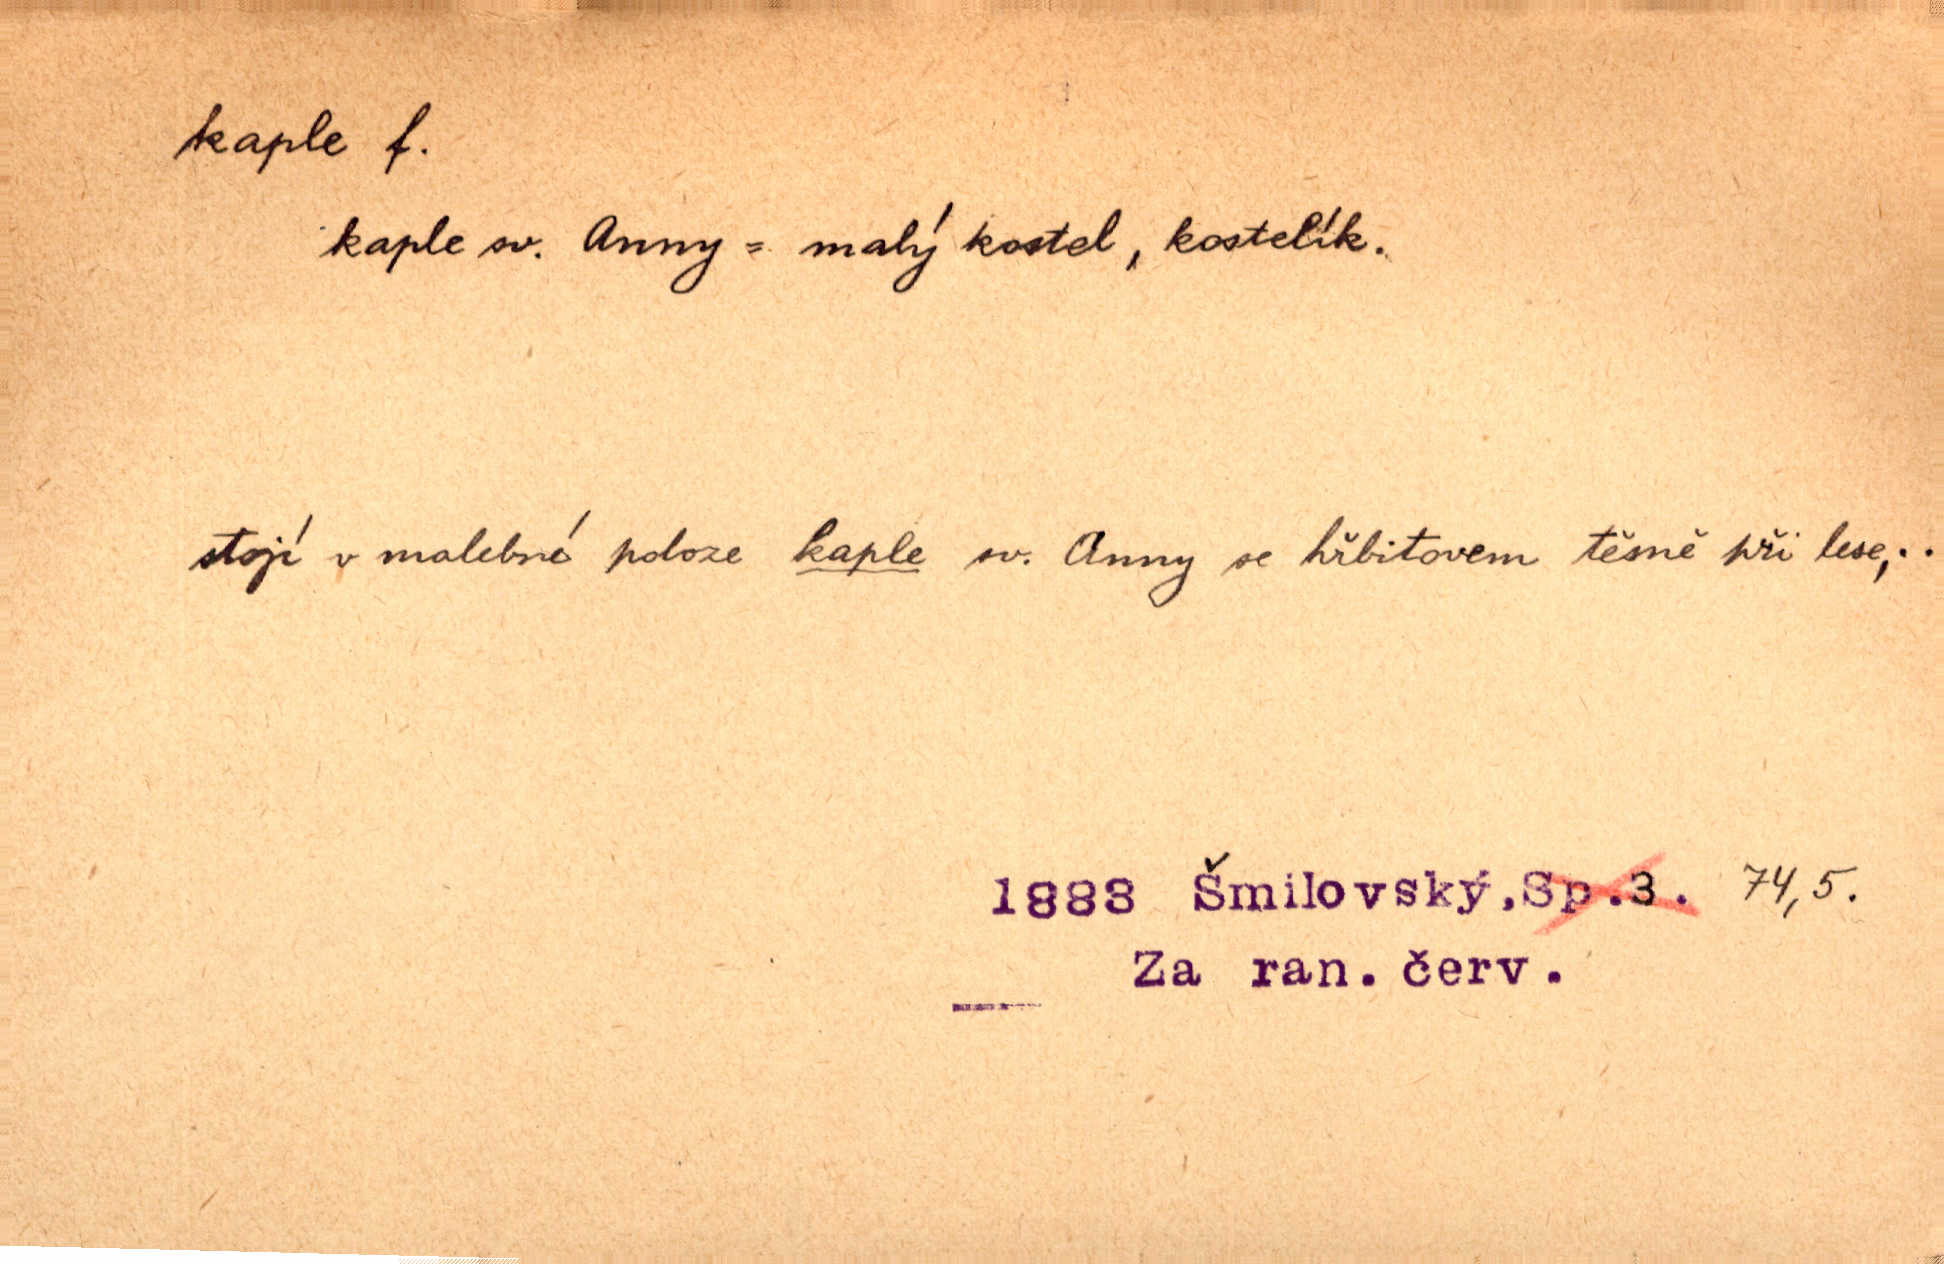 kaple f.
kaple sv. Anny = malý kostel, kostelík.
stojí v malebné poloze kaple sv. Anny se hřbitovem těsně při lese,..
1883 Šmilovský,Sp.3. 74,5.
Za ran. červ.